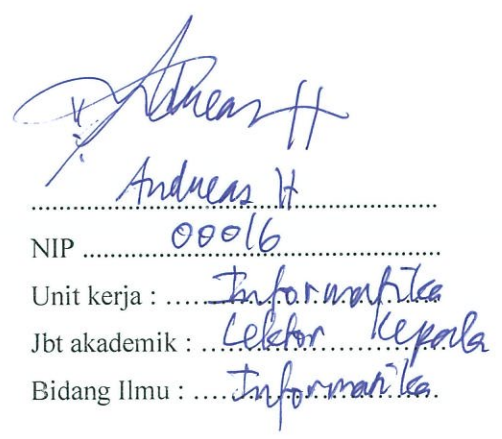 Andreas H
Andreas H
NIP 00016
Unit kerja : Informatika
Jbt akademik : Lektor Kepala
Bidang Ilmu : Informatika